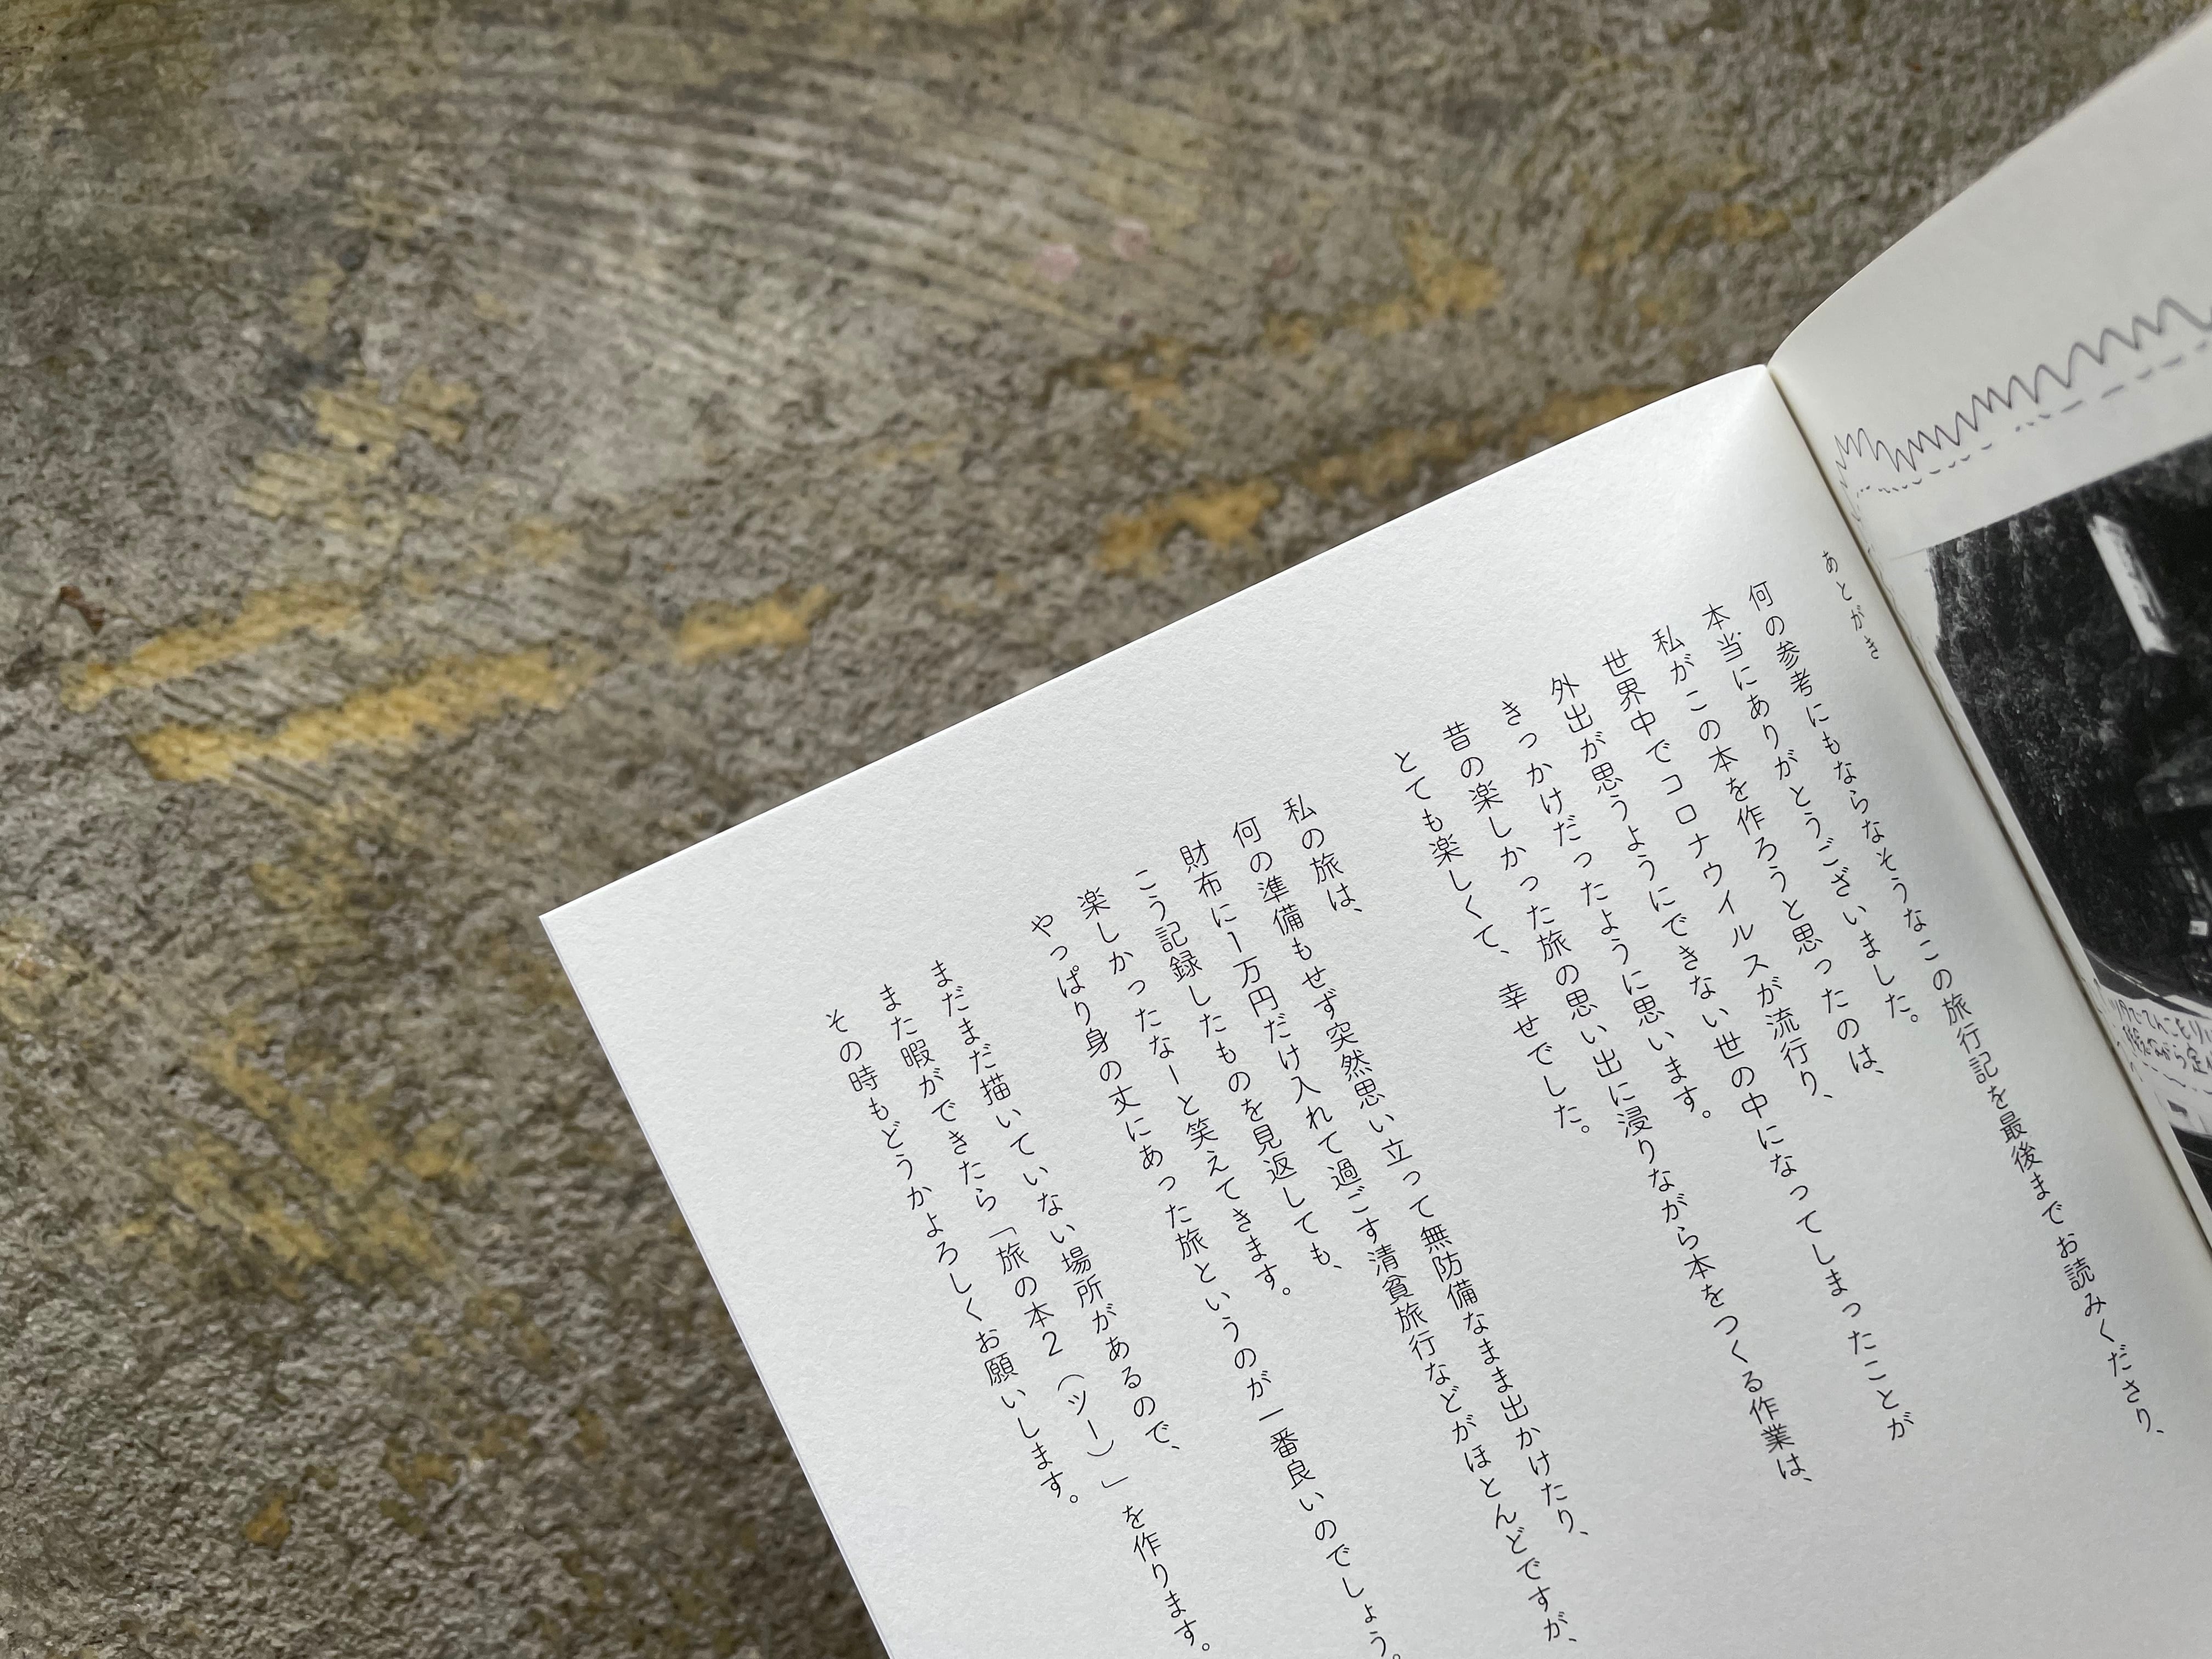 あとがき
何の参考にもならなそうなこの旅行記を最後までお読みくださり、
本当にありがとうございました。
私がこの本を作ろうと思ったのは、
世界中でコロナウイルスが流行り、
外出が思うようにできない世の中になってしまったことが
きっかけだったように思います。
昔の楽しかった旅の思い出に浸りながら本をつくる作業は、
とても楽しくて、幸せでした。
私の旅は、
何の準備もせず突然思い立って無防備なまま出かけたり、
財布に1万円だけ入れて過ごす清貧旅行などがほとんどですが、
こう記録したものを見返しても、
楽しかったなーと笑えてきます。
やっぱり身の丈にあった旅というのが一番良いのでしょう。
まだまだ描いていない場所があるので、
また暇ができたら「旅の本2（ツー）」を作ります。
その時もどうかよろしくお願いします。